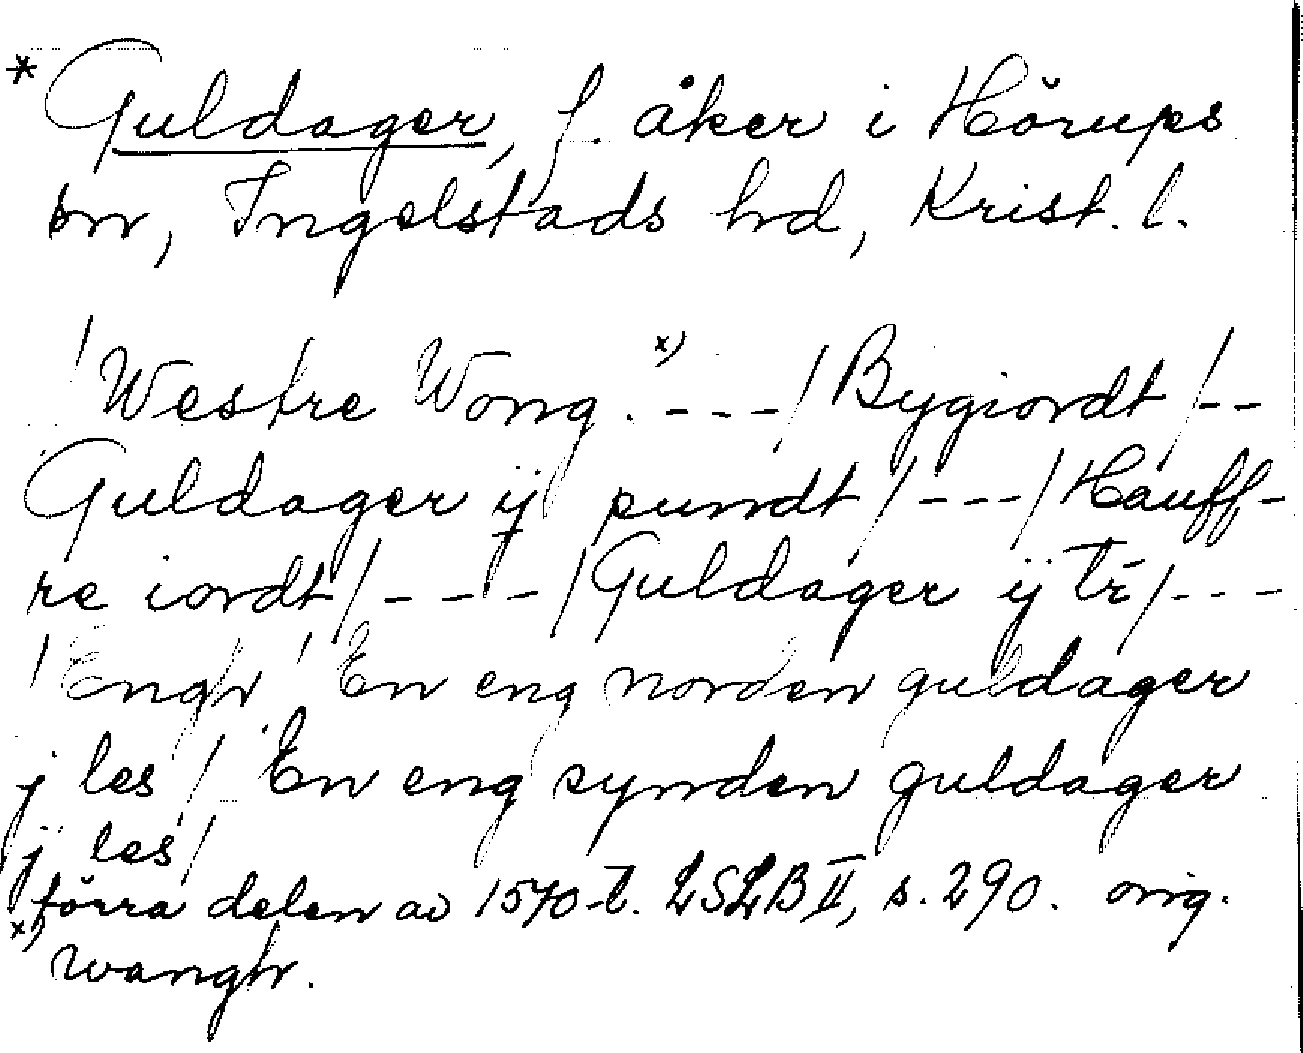 * Guldager, f. åker i Hörups
sn, Ingelstads hd, Krist. l.
/Westre Wong.x) ---/Bygiordt/--
Guldager ij pundt/---/Hauff-
re iordt/----/Guldager ij tr̄/---
/Engh/ En eng norden guldager
j les/ En eng synden guldager
j les/
förra delen av 1570-t. LSLB II, s. 290. orig.
x) wangh.